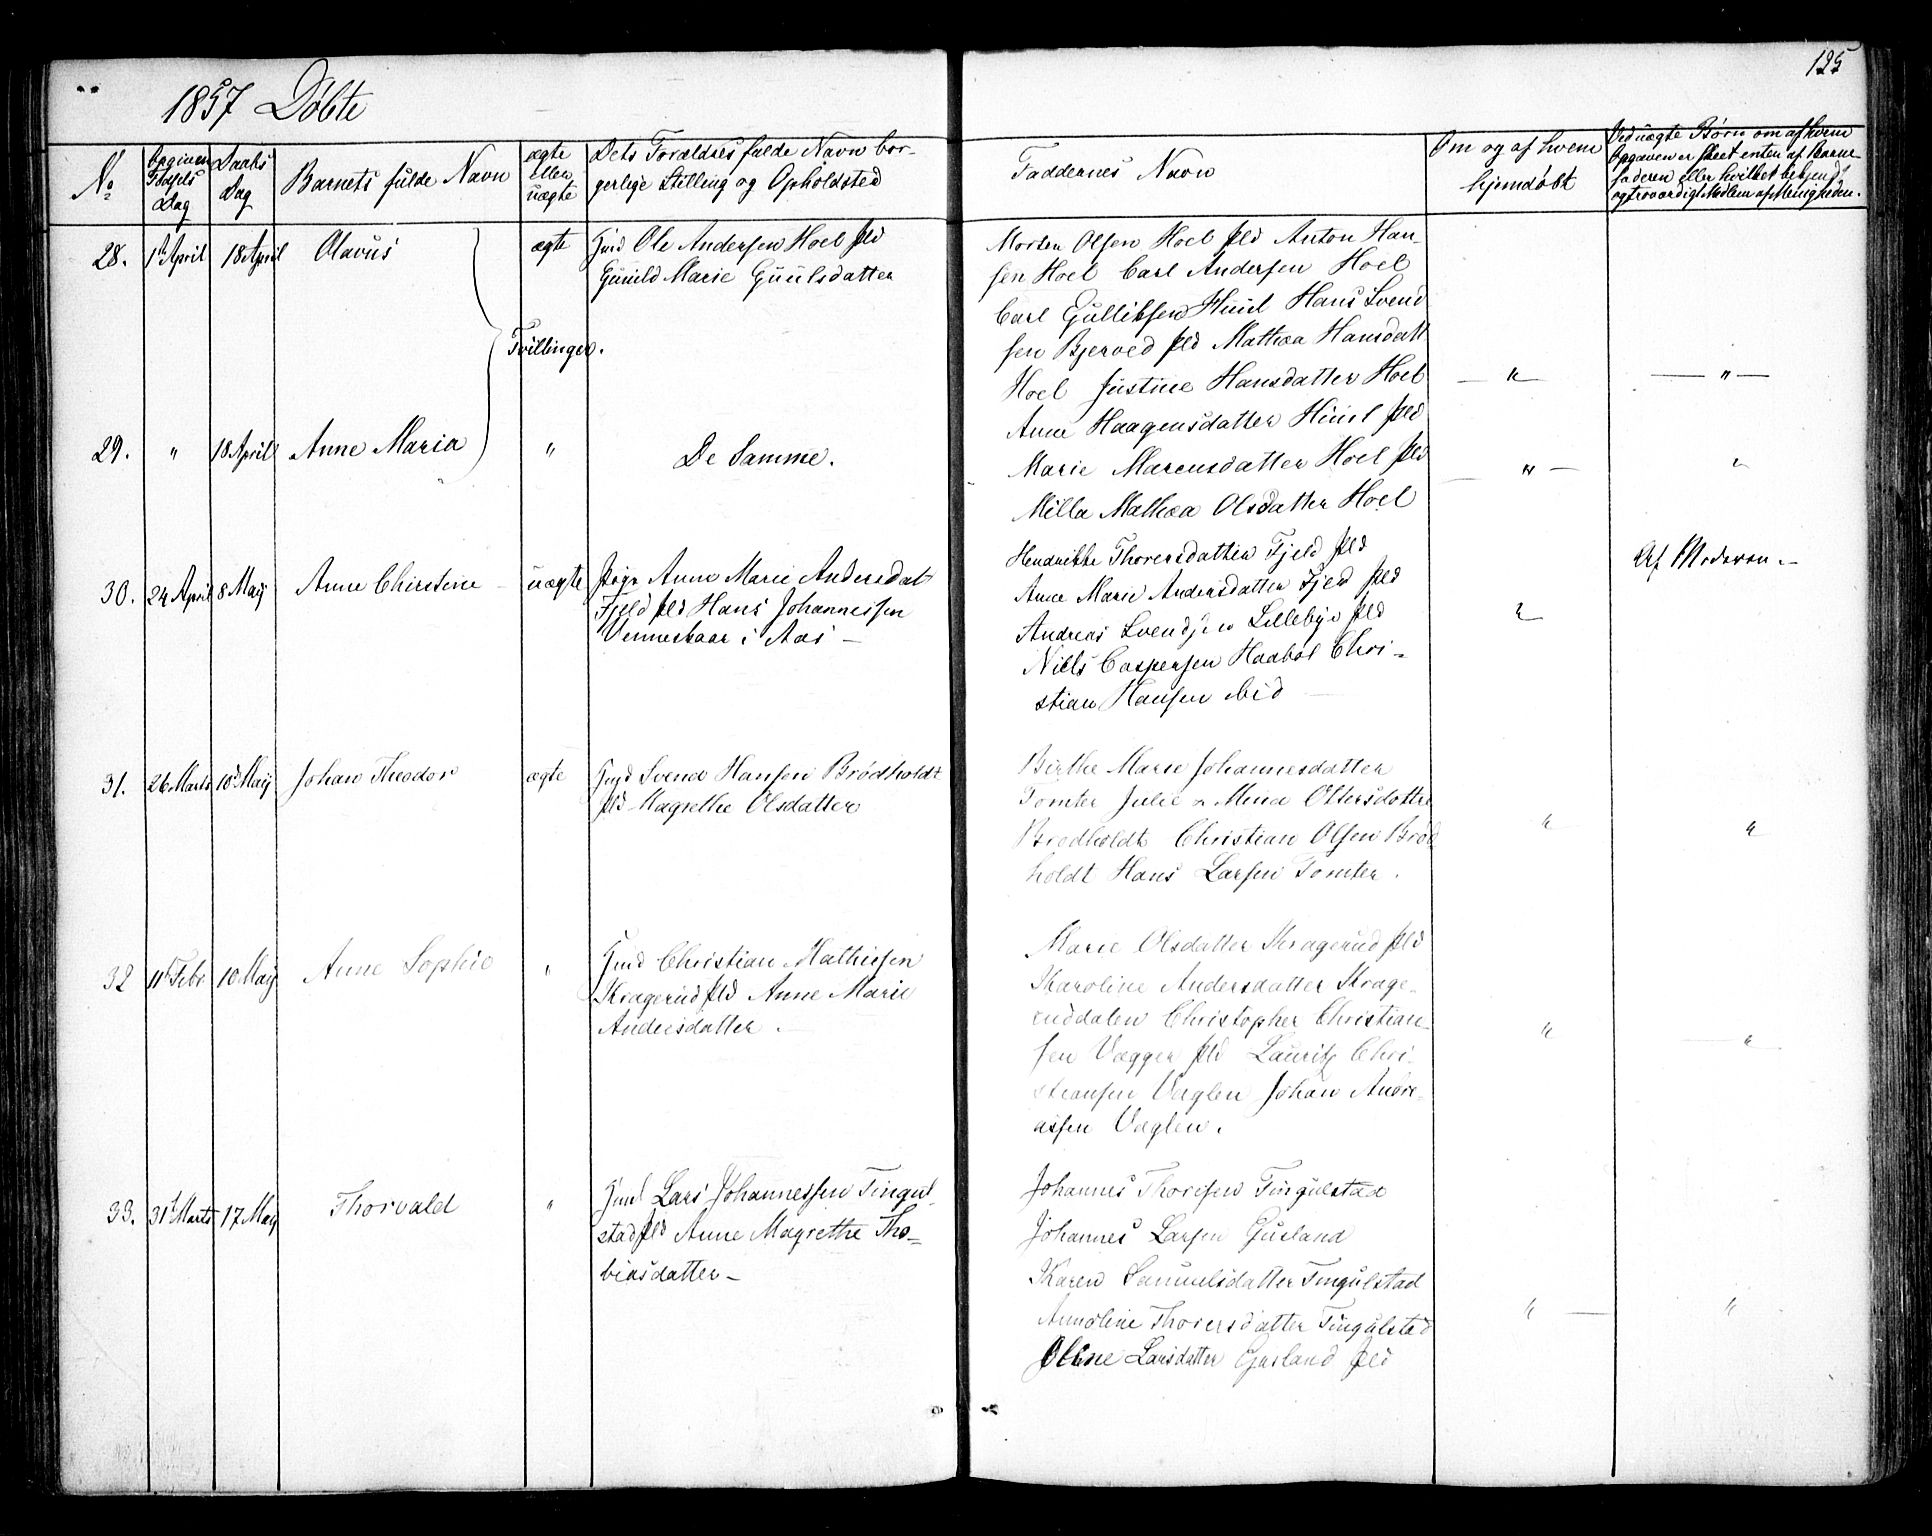 125
1857 Døbte
No
Opgiven Fødsels Dag
Daabs Dag
Barnets fulde Navn
ægte eller uægte
Dets Forældres fulde Navn bor-
gerlige Stilling og Opholdsted
Faddernes Navn
Om og af hvem
hjemdøbt
Ved uægte Børn om af hvem
Opgaven er skeet enten af Barne-
faderen eller hvilket bekjendt
og troværdigt Medlem af Menigheden.
28. 1st April 18 April Olavus ægte Gmd Ole Andersen Hoel pld
Gunild Marie Guulsdatter
Tvillinger.
Morten Olsen Hoel pld Anton Han-
sen Hoel Carl Andersen Hoel
Carl Gulliksen Huul Hans Svend
sen Bjerved pld Mathea Hansdatt
Hoel Justine Hansdatter Hoel — " — — " —
Anne Haagensdatter Huul pld
29. " 18 April Anne Maria " De Samme.
Marie Marcusdatter Hoel pld " — "
Milla Mathea Olsdatter Hoel
30. 24 April 8 Maij Anne Chirstine — uægte Pige Anne Marie Andersdat
Fjeld pld Hans Johannessen
Venneskaar i Aas —
Hendrikke Thorersdatter Fjeld pld
Anne Marie Andersdatter Fjeld pld
Andreas Svendsen Lillebye pld
Niels Caspersen Haabøl Chri-
stian Hansen ibid —
"
Af Moderen. -
31. 26 Marts 10d Maij Johan Theodor ægte Gmd Svend Hansen Brødholdt
pld Magrethe Olsdatter
Birthe Marie Johannesdatter
Tomter Julie & Mina Ottersdottre
Brødholdt Christian Olsen Brød
holdt Hans Larsen Tomter.
" "
32 11t Febr 10 Maij Anne Sophie " Gmd Christian Mathiesen
Kragerud pld Anne Marie
Andersdatter. -
Marie Olsdatter Kragerud pld
Karoline Andersdatter Krage-
ruddalen Christopher Christian-
sen Vægger pld Lauritz Chri-
stiansen Væglen Johan Andre-
assen Væglen.
" "
33. 31t Marts 17 Maij Thorvald " Gmd Lars Johannessen Tingul
stad pld Anne Magrethe Tho-
biasdatter —
Johannes Thoresen Tingulstad
Johannes Larsen Gusland
Karen Samuelsdatter Tingulstad
Annoline Thorersdatter Tingulstad
Oline Larsdatter Gusland pld
" — "